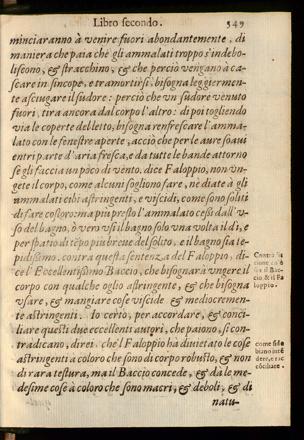 Libro secondo. 549
minciaranno à venire fuori abondantemente, di
maniera che paia che gli ammalati troppo s'indebo-
liscono, & stracchino, & che perciò vengano à ca-
scare in sincope, e tramortirsi, bisogna leggiermen-
te asciugare il sudore: perciò che un sudore venuto
fuori, tira ancora dal corpo l'altro: di poi togliendo
via le coperte del letto, bisogna renfrescare l'amma-
lato con le fenestre aperte, acciò che per le aure soavi
entri parte d'aria fresca, e da tutte le bande attorno
se gli faccia un poco di vento. dice Faloppio, non un-
gete il corpo, come alcuni sogliono fare, nè diate à gli
ammalati cibi astringenti, e viscidi, come sono soliti
di fare costoro: ma più presto l'ammalato cessi dall'v-
so del bagno, ò vero usi il bagno solo una volta il dì, e
per spatio di tẽpo più breve del solito, e il bagno sia te-
pidissimo. contra questa sentenza del Faloppio, di-
ce l'Eccellentissimo Baccio, che bisognarà ungere il
corpo con qualche oglio astringente, & che bisogna
usare, & mangiare cose viscide & mediocremen-
te astringenti. Io certo, per accordare, & conci-
liare questi due eccellenti autori, che paiono, si con-
tradicano, direi che'l Faloppio hà divietato le cose
astringenti à coloro che sono di corpo robusto, & non
di rara testura, ma il Baccio concede, & dà le me-
desime cose à coloro che sono macri, & deboli, & di
natu-
Contra
tione
sia il Bac-
cio, & il Fa
loppio.
come si de
biano intẽ
dere, e
cõciliare.